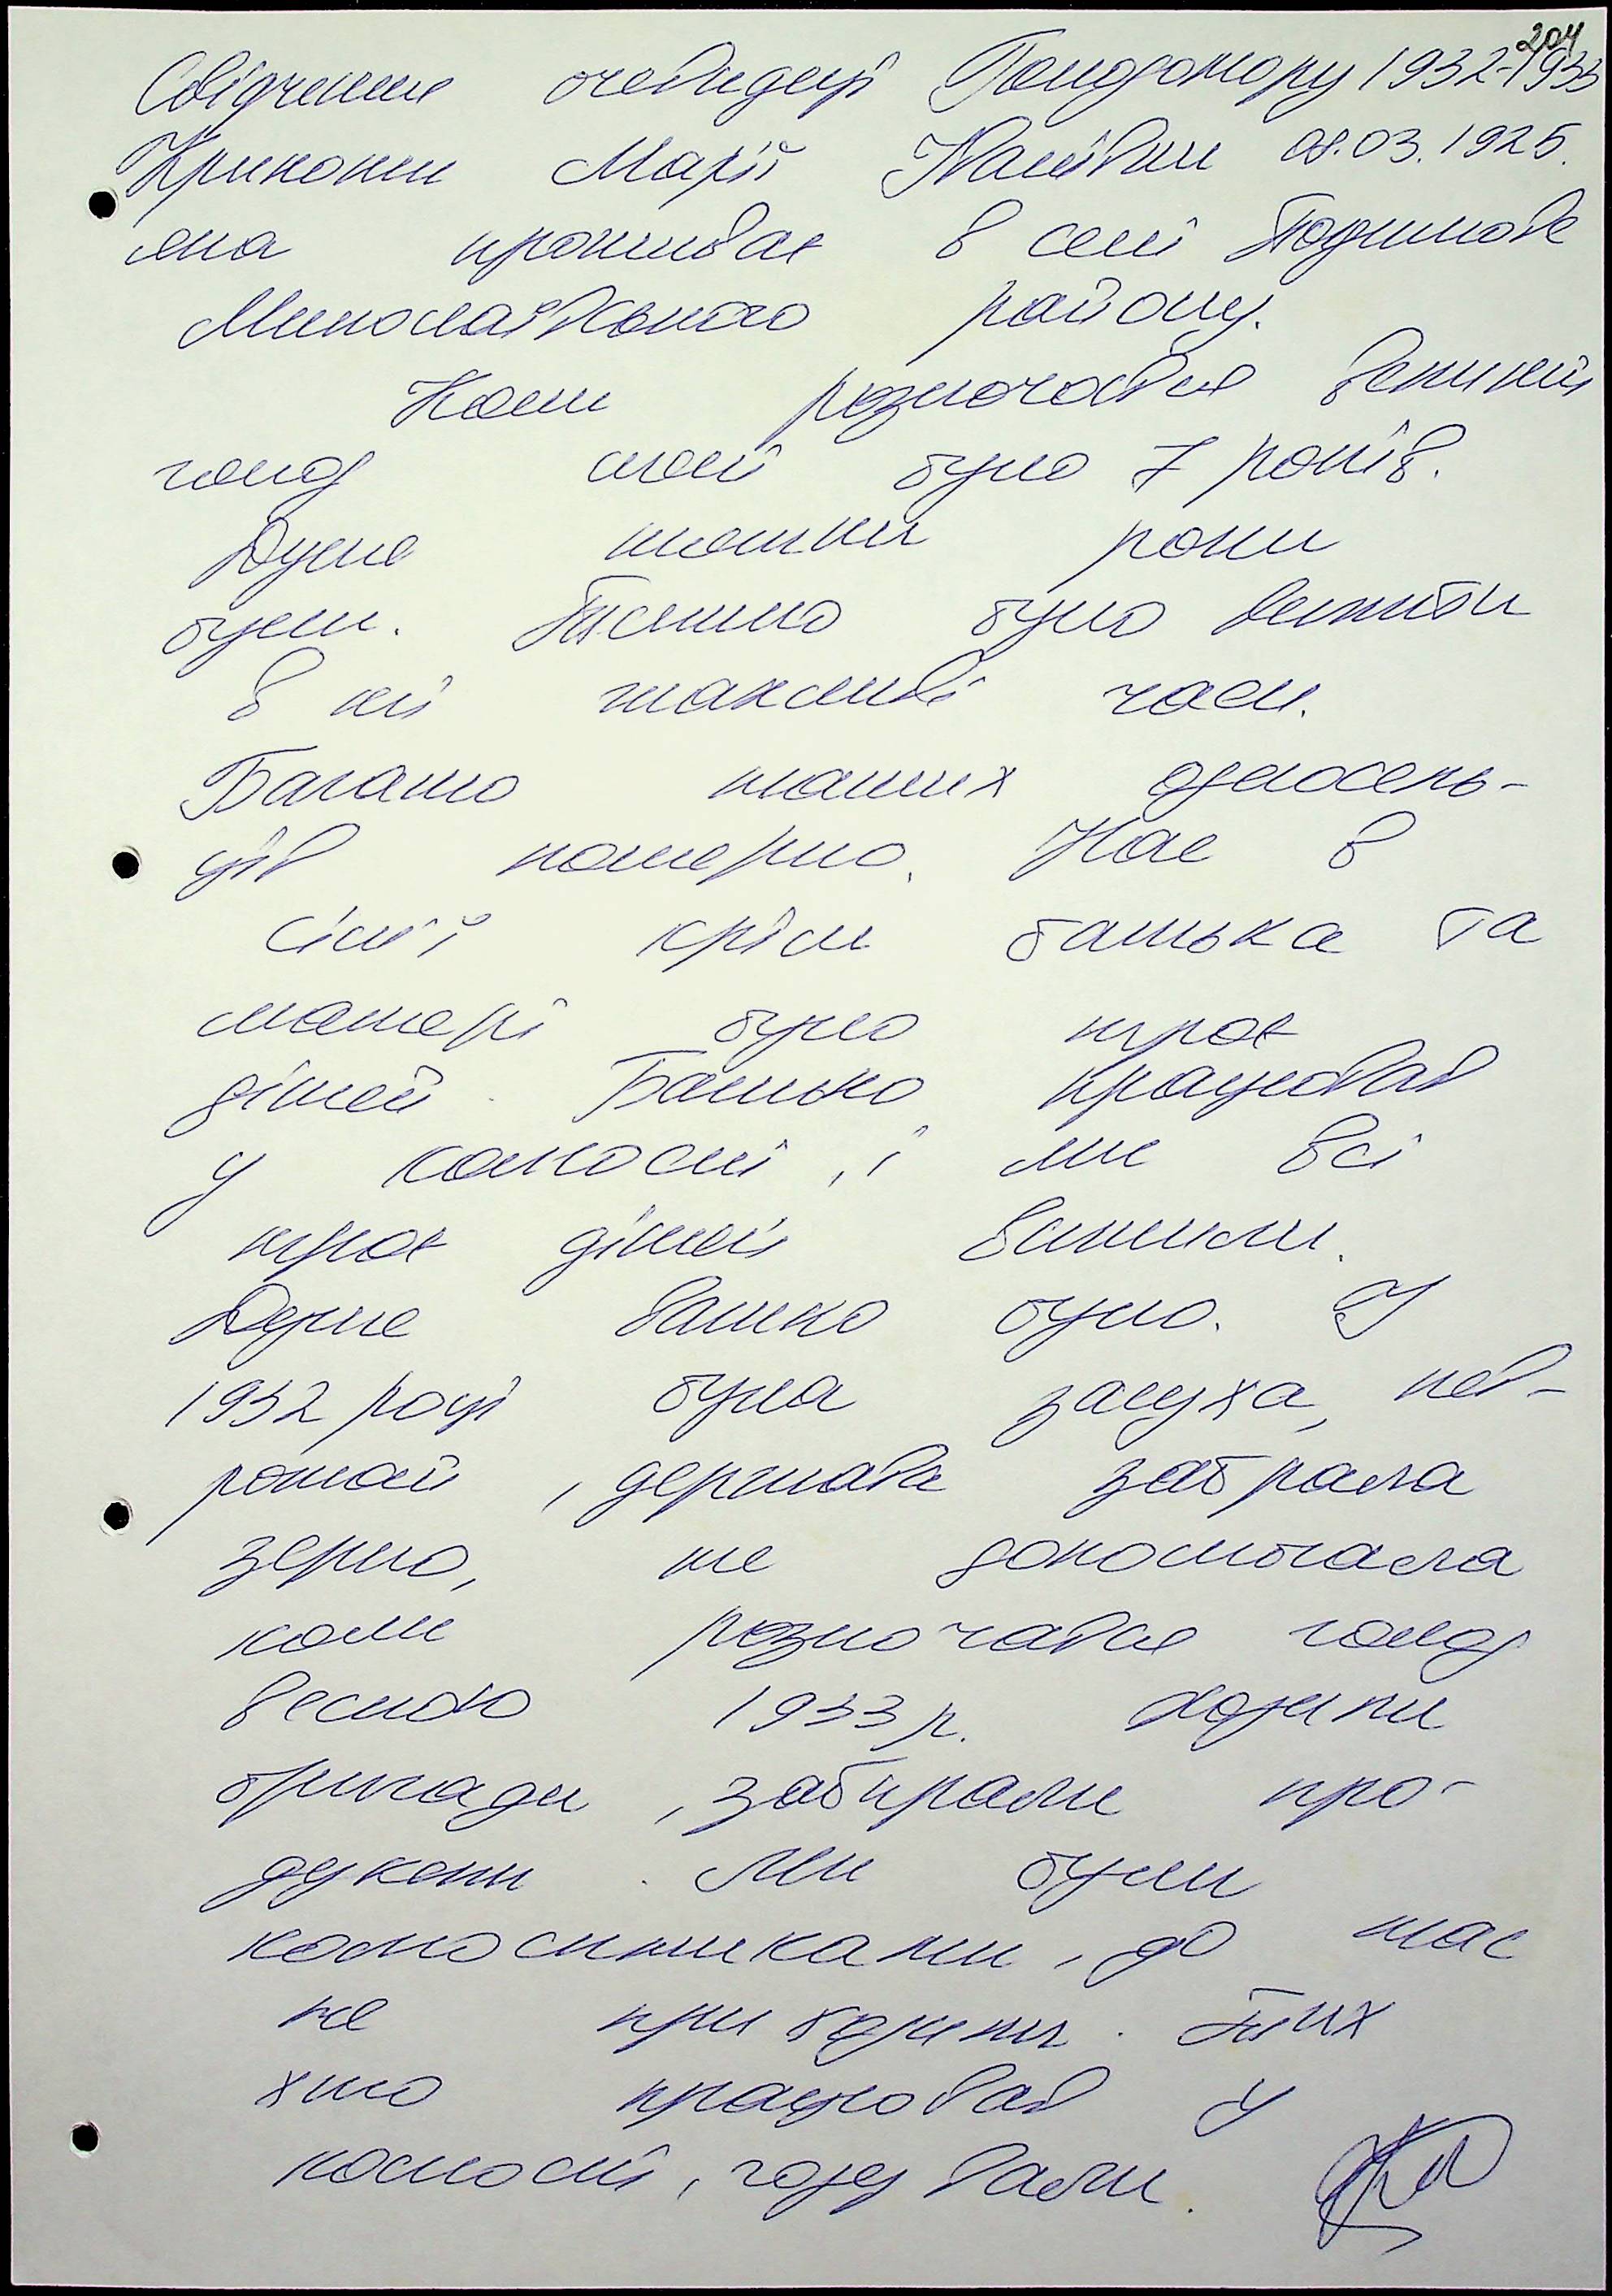 204
Свідчення очевидця Голодомору 1932-1933
Крикони Марії Іванівни 08.03.1925.
яка проживає в селі
Милославського району.
Коли розпочався великий
голод мені було 7 років.
Дуже тяжкі роки
були. Тяжко було вижити
в ці жахливі часи.
Багато наших односель-
ців померло. Нас в
сім'ї крім батька та
матері було троє
дітей. Батько працював
у колгоспі, і ми всі
троє дітей вижили.
Дуже важко було. У
1932 році була засуха, нев-
рожай, держава забрала
зерно, не допомогала
коли розпочався голод
весною 1933 р. ходили
бригади, забирали про-
дукти. Ми були
колгоспниками, до нас
не приходили. Тих
хто працював у
колгоспі, годували.